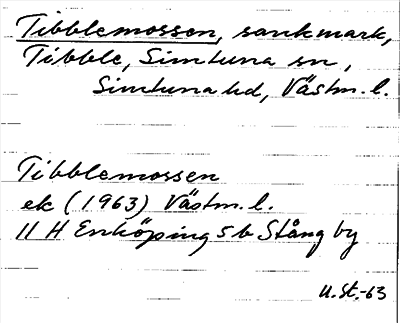 Tibblemossen, sankmark,
Tibble, Simtuna sn,
Simtuna hd, Västm. l.
Tibblemossen
ek (1963) Västm. l.
11 H Enköping 5 b Stång by
U.St.-63